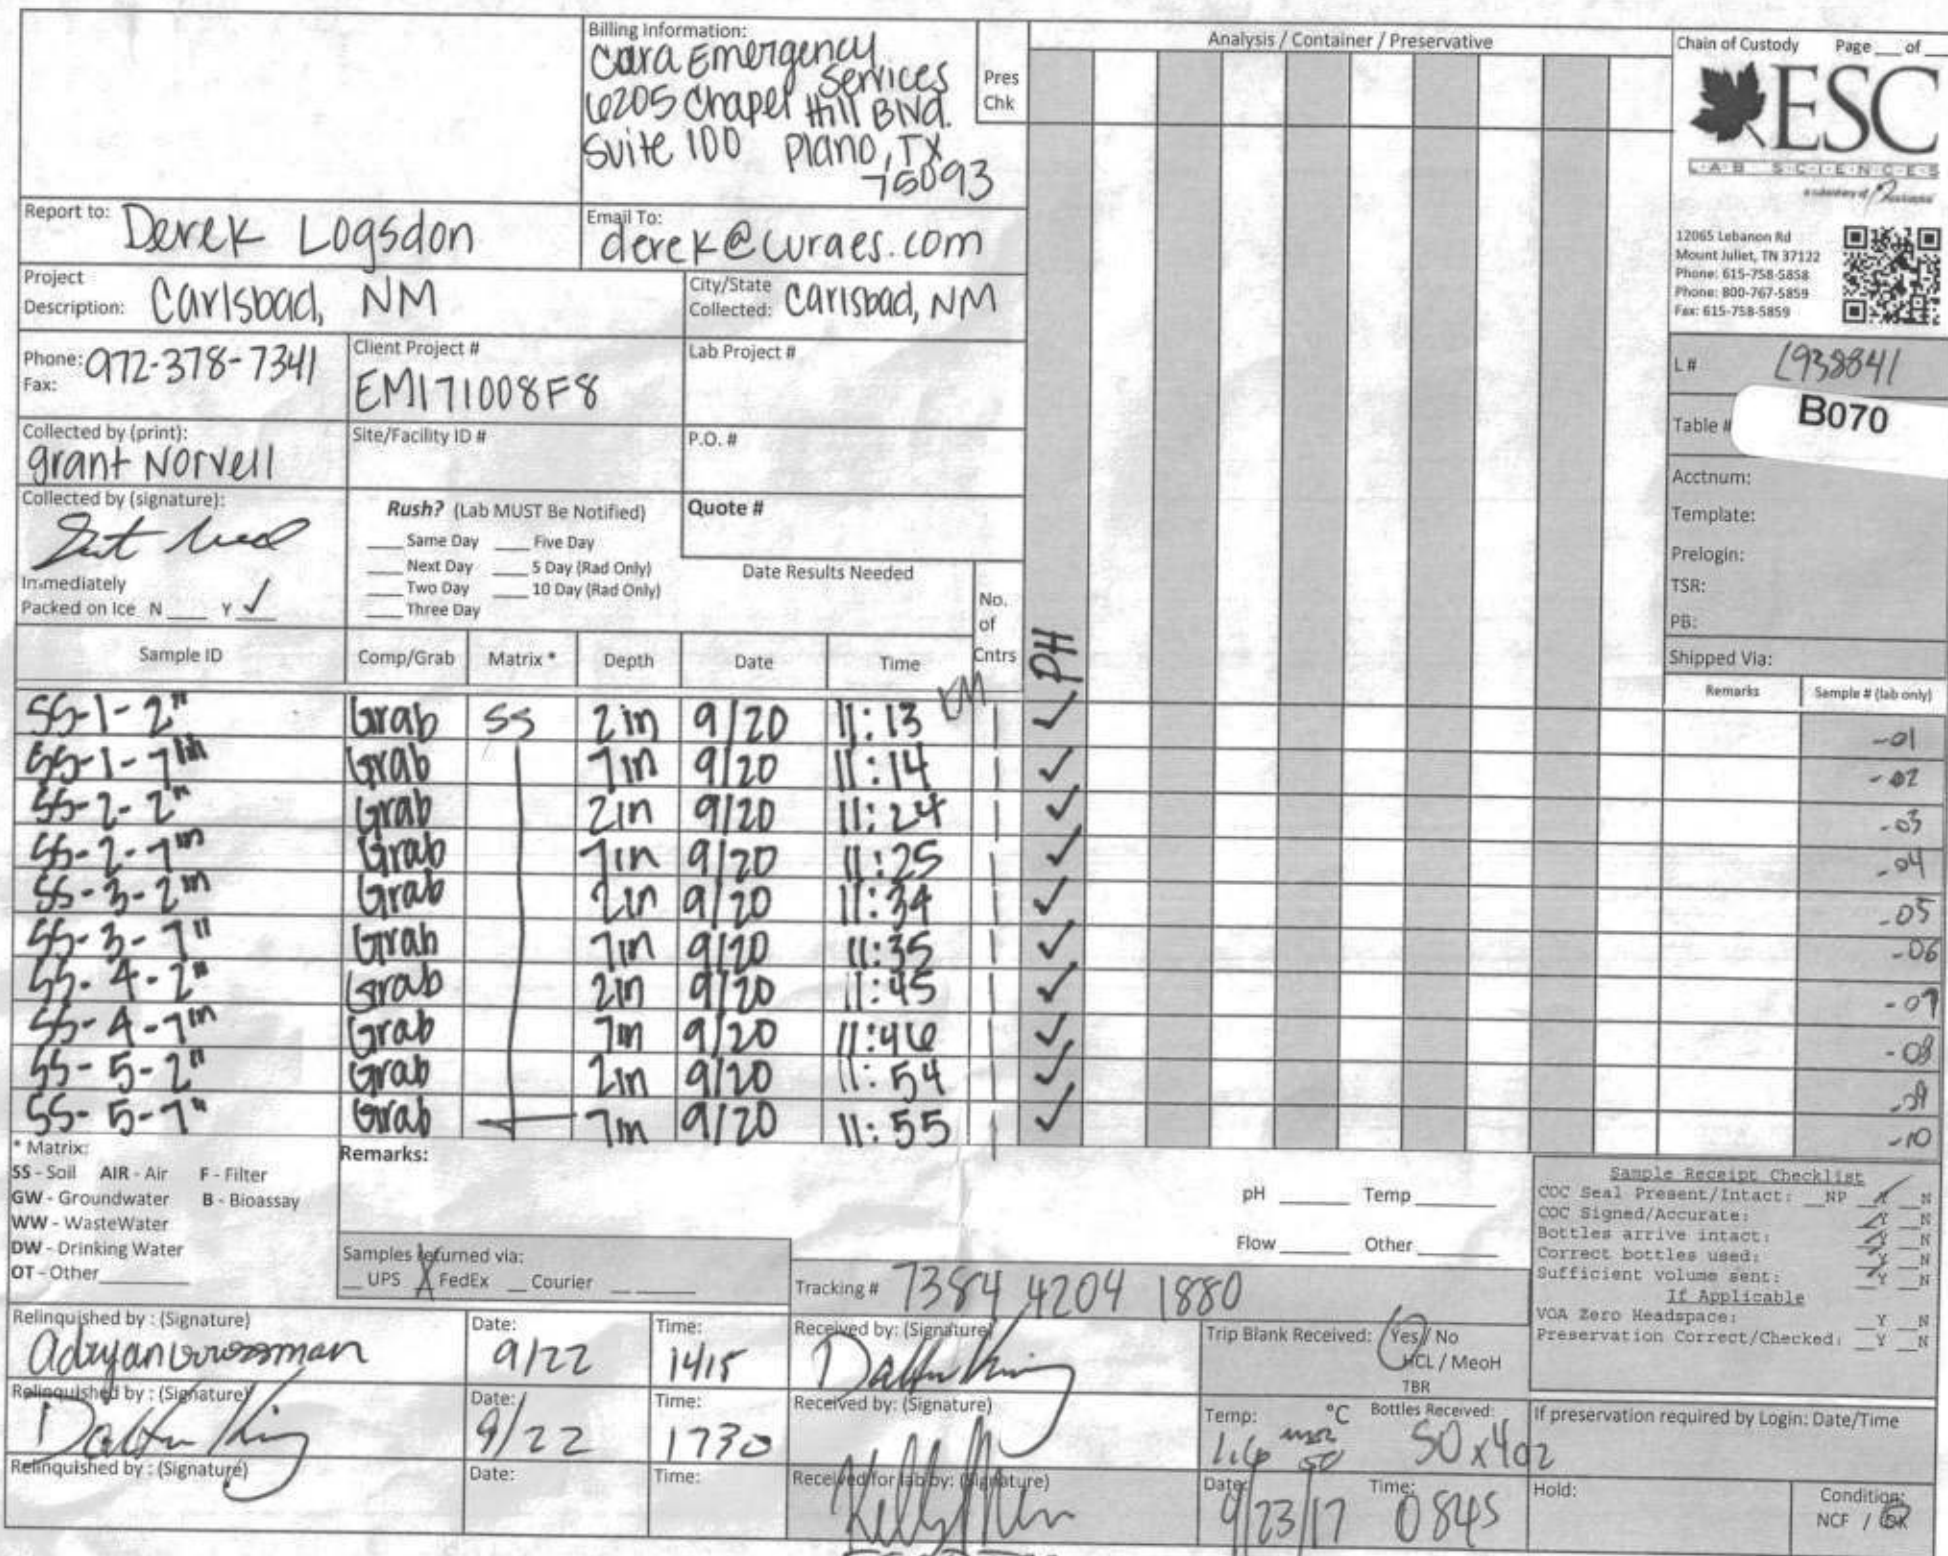 Billing Information:
Cura Emergency
Services
6205 Chapel Hill Blvd.
Suite 100 Plano, TX
75093
Pres
Chk
Analysis / Container / Preservative
Chain of Custody Page ___ of ___
ESC
L·A·B S·C·I·E·N·C·E·S
a subsidiary of
12065 Lebanon Rd
Mount Juliet, TN 37122
Phone: 615-758-5858
Phone: 800-767-5859
Fax: 615-758-5859
Report to: Derek Logsdon
Email To:
derek@curaes.com
Project
Description: Carlsbad, NM
City/State
Collected: Carlsbad, NM
Phone: 972-378-7341
Fax:
Client Project #
EM171008F8
Lab Project #
L# L938841
Table # B070
Collected by (print):
grant Norvell
Site/Facility ID #
P.O. #
Acctnum:
Template:
Prelogin:
TSR:
PB:
Shipped Via:
Collected by (signature):
Immediately
Packed on Ice N ___ Y ✓
Rush? (Lab MUST Be Notified)
___ Same Day ___ Five Day
___ Next Day ___ 5 Day (Rad Only)
___ Two Day ___ 10 Day (Rad Only)
___ Three Day
Quote #
Date Results Needed
No.
of
Cntrs
PH
Sample ID Comp/Grab Matrix * Depth Date Time Remarks Sample # (lab only)
SS-1-2" Grab SS 2 in 9/20 11:13 1 ✓ -01
SS-1-7in Grab 7in 9/20 11:14 1 ✓ -02
SS-2-2" Grab 2in 9/20 11:24 1 ✓ -03
SS-2-7in Grab 7in 9/20 11:25 1 ✓ -04
SS-3-2in Grab 2in 9/20 11:34 1 ✓ -05
SS-3-7" Grab 7in 9/20 11:35 1 ✓ -06
SS-4-2" Grab 2in 9/20 11:45 1 ✓ -07
SS-4-7in Grab 7in 9/20 11:46 1 ✓ -08
SS-5-2" Grab 2in 9/20 11:54 1 ✓ -09
SS-5-7" Grab 7in 9/20 11:55 1 ✓ -10
* Matrix:
SS - Soil AIR - Air F - Filter
GW - Groundwater B - Bioassay
WW - WasteWater
DW - Drinking Water
OT - Other
Remarks:
pH ___ Temp ___
Flow ___ Other ___
Samples returned via:
__ UPS X FedEx __ Courier
Tracking # 7384 4204 1880
Sample Receipt Checklist
COC Seal Present/Intact: __NP ✓Y __N
COC Signed/Accurate: ✓Y __N
Bottles arrive intact: ✓Y __N
Correct bottles used: ✓Y __N
Sufficient volume sent: ✓Y __N
If Applicable
VOA Zero Headspace: __Y __N
Preservation Correct/Checked: __Y __N
Relinquished by : (Signature)
Date:
9/22
Time:
1415
Received by: (Signature)
Dalton King
Trip Blank Received: Yes / No
HCL / MeoH
TBR
Relinquished by : (Signature)
Dalton King
Date:
9/22
Time:
1730
Received by: (Signature)
Temp: °C Bottles Received:
50x4oz
If preservation required by Login: Date/Time
Relinquished by : (Signature)
Date:
Time:
Received for lab by: (Signature)
Date:
9/23/17
Time:
0845
Hold:
Condition:
NCF / OK